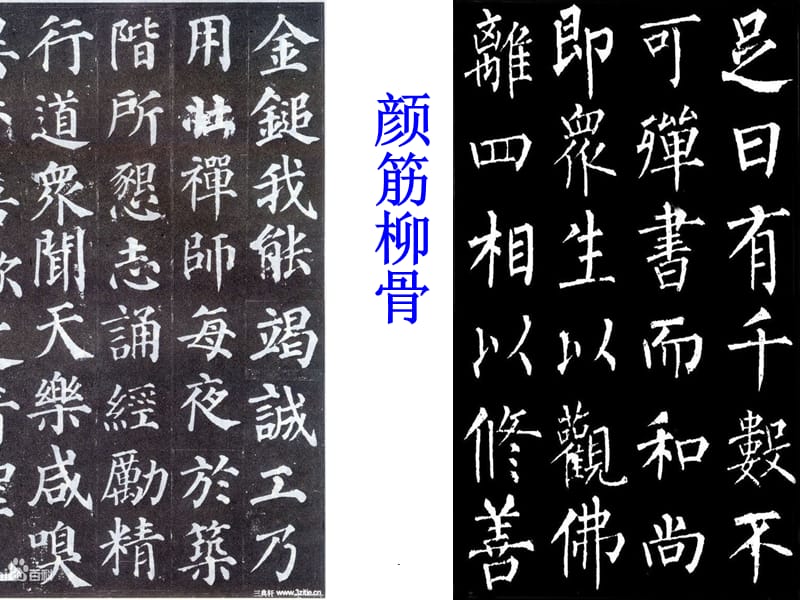 金鎚我能竭誠工乃
用壯禪師每夜於築
階所懇志誦經勵精
行道眾聞天樂咸嗅
百科
www.3zitie.cn
颜筋柳骨
足日有千數不
可殫書而和尚
即眾生以觀佛
離四相以修善